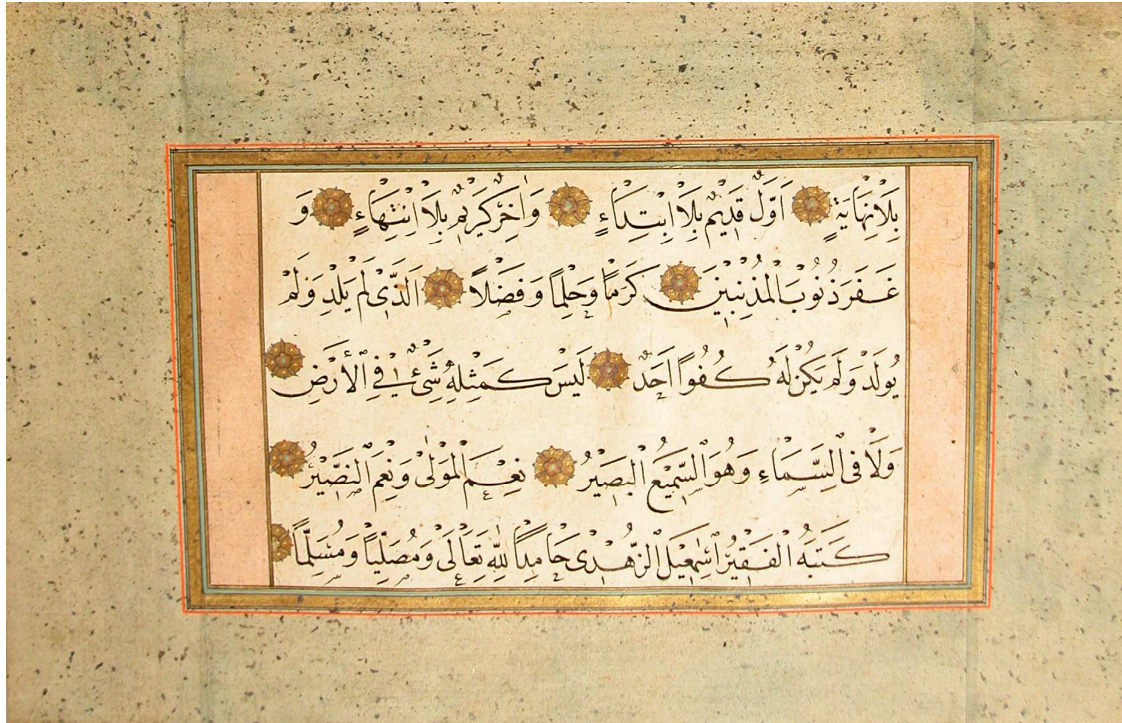 بِلَا نِهَايَةٍ اَوَّلٌ قَدِيْمٌ بِلَا اِبْتِدَاءٍ وَاٰخِرٌ كَرِيْمٌ بِلَا اِنْتِهَاءٍ وَ
غَفَرَ ذُنُوْبَ الْمُذْنِبِيْنَ كَرَمًا وَحِلْمًا وَفَضْلًا اَلَّذِيْ لَمْ يَلِدْ وَلَمْ
يُولَدْ وَلَمْ يَكُنْ لَهُ كُفُوًا اَحَدٌ لَيْسَ كَمِثْلِهِ شَيْءٌ فِي الْأَرْضِ
وَلَا فِى السَّمَاءِ وَهُوَ السَّمِيْعُ الْبَصِيْرُ نِعْمَ الْمَوْلٰى وَنِعْمَ النَّصِيْرُ
كَتَبَهُ الْفَقِيْرُ اِسْمٰعِيْلُ الزُّهْدِى حَامِدًا لِلّٰهِ تَعَالٰى وَمُصَلِّيًا وَمُسَلِّمًا